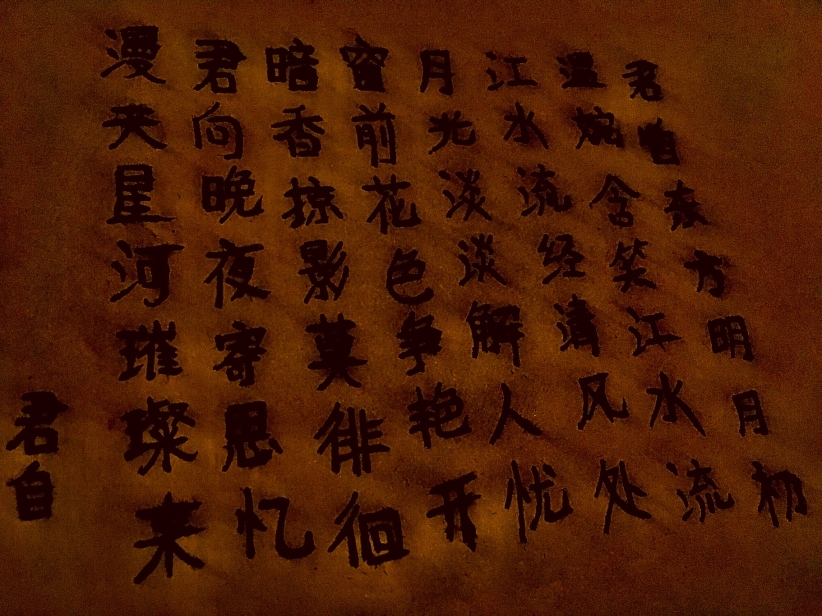 君自东方明月初
温婉含笑江水流
江水流经清风处
月光淡淡解人忧
窗前花色争艳开
暗香掠影莫徘徊
君向晚夜寄思忆
漫天星河璀璨来
君自